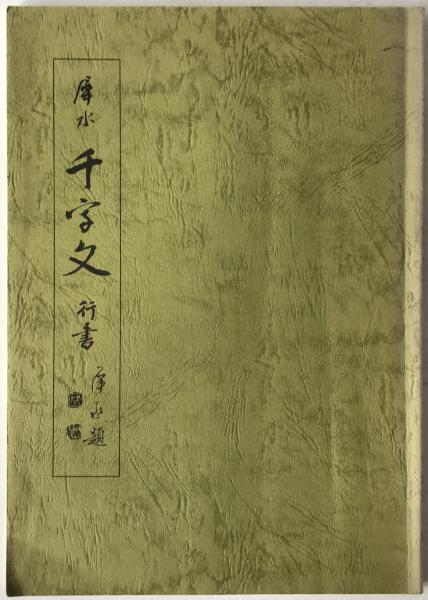 犀水 千字文 行書
犀水題